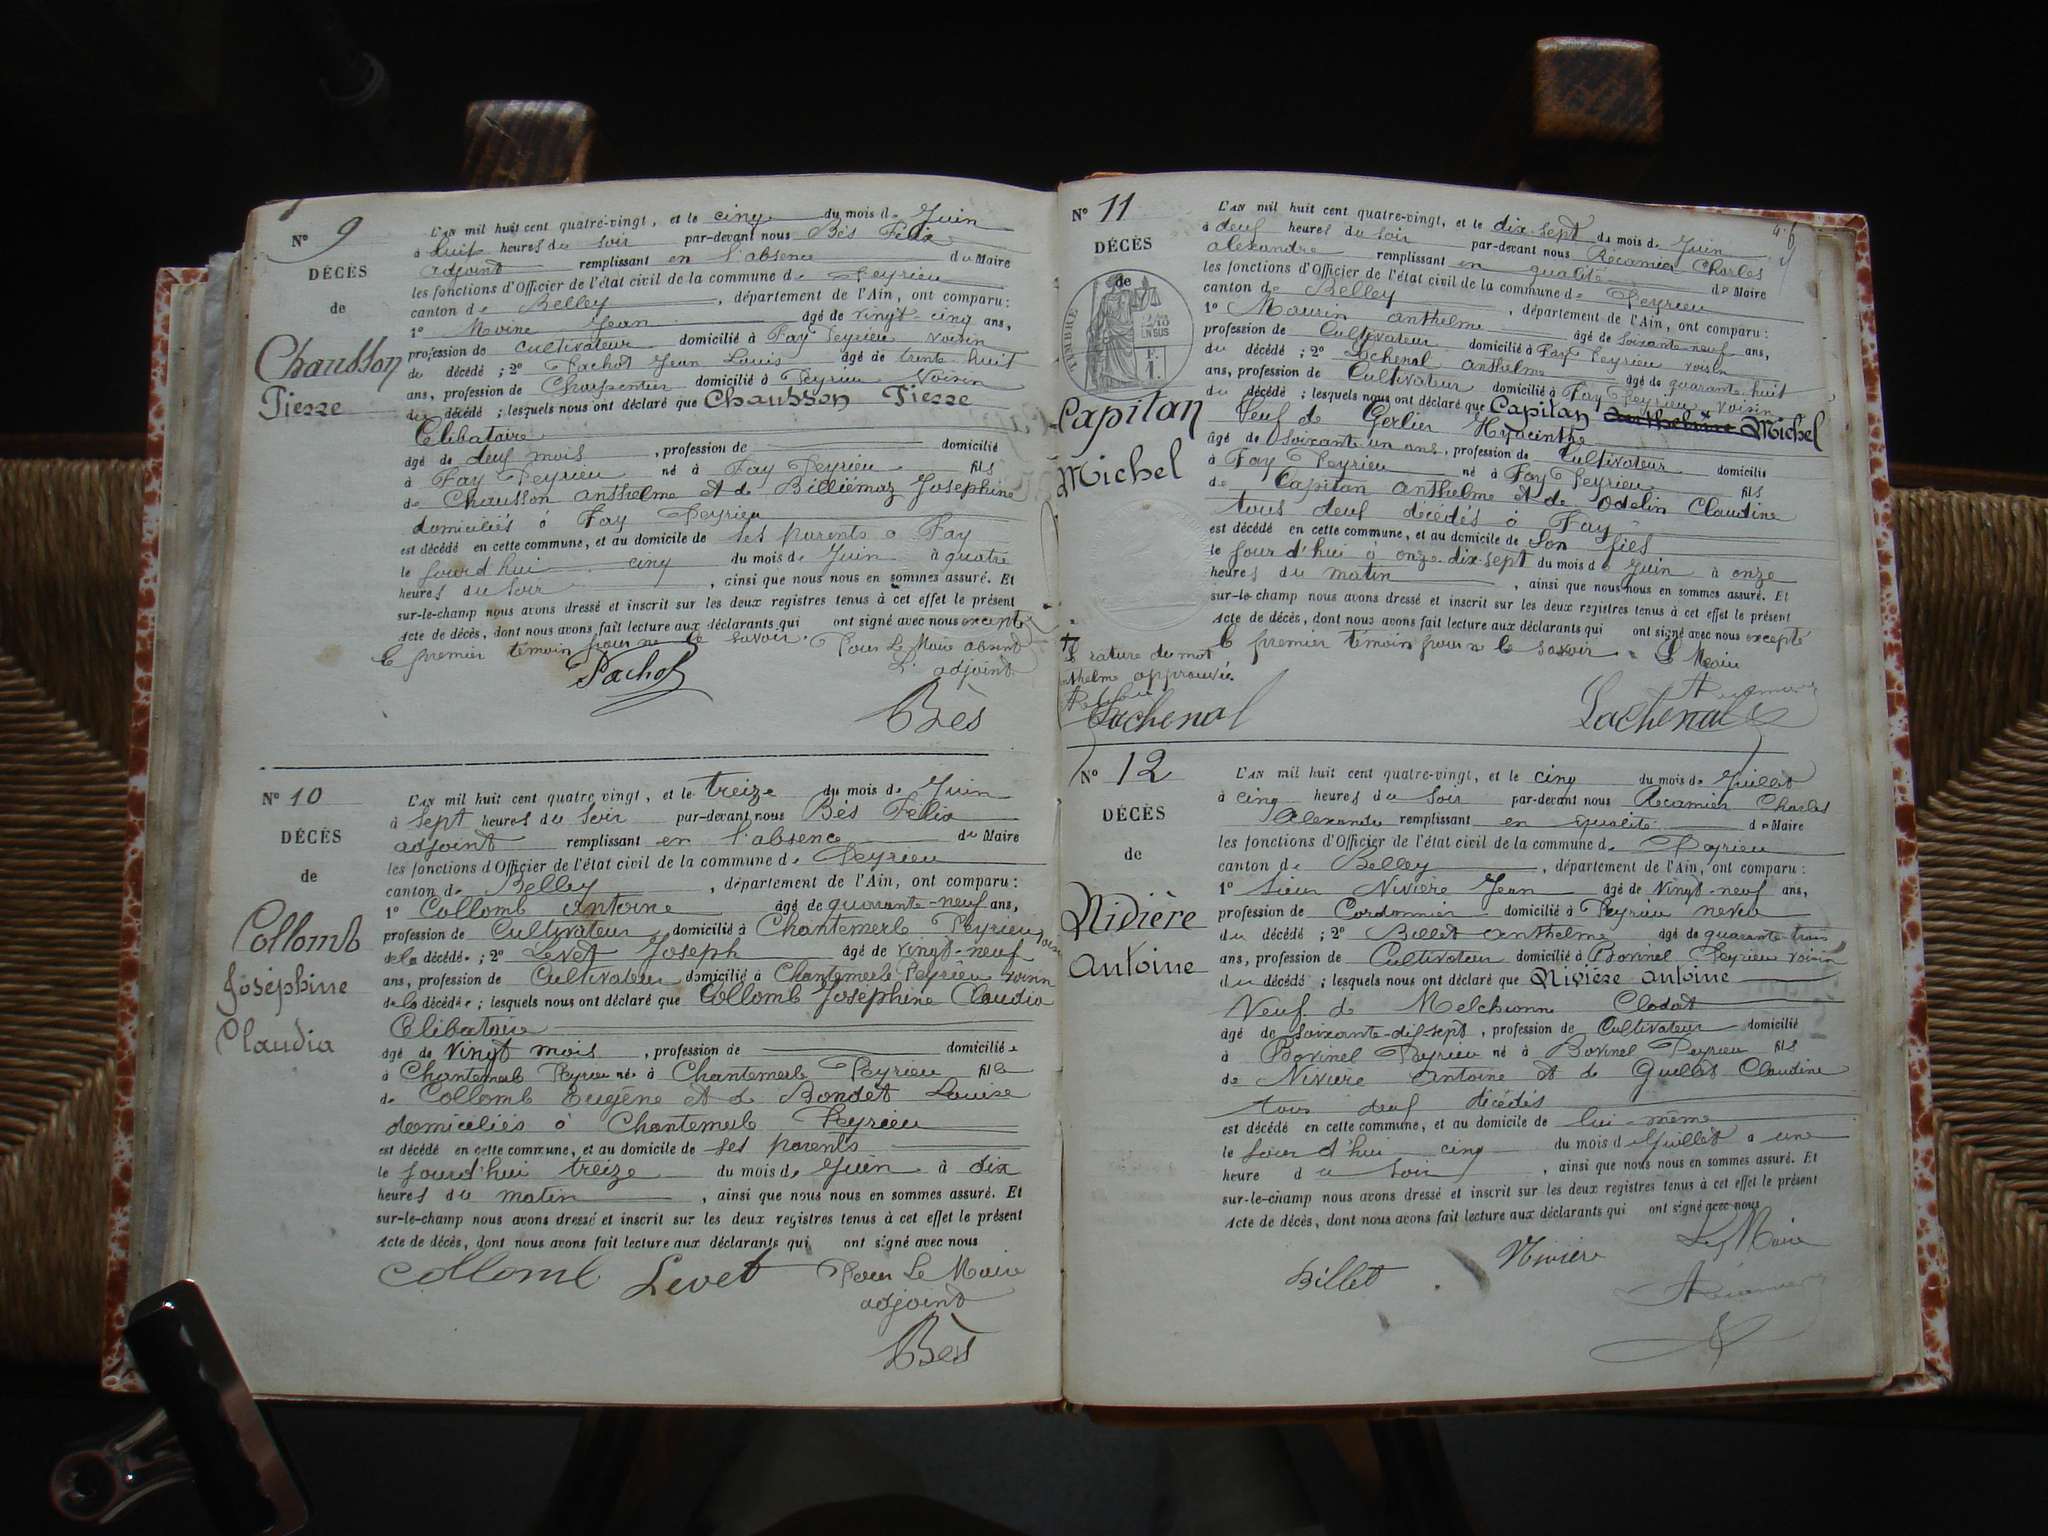 N° 9
DÉCÈS
de
Chausson
Pierre
L'AN mil huit cent quatre-vingt, et le cinq du mois de Juin
à huit heures du soir par-devant nous Bès Félix
adjoint remplissant en l'absence du Maire
les fonctions d'Officier de l'état civil de la commune de Peyrieu
canton de Belley, département de l'Ain, ont comparu:
1° Moine Jean âgé de vingt-cinq ans,
profession de cultivateur domicilié à Fay Peyrieu voisin
du décédé ; 2° Pachot Jean Louis âgé de trente huit
ans, profession de Charpentier domicilié à Peyrieu Voisin
du décédé ; lesquels nous ont déclaré que Chausson Pierre
Célibataire
âgé de deux mois, profession de domicilié
à Fay Peyrieu né à Fay Peyrieu fils
de Chausson anthelme et de Billiémaz Joséphine
domiciliés à Fay Peyrieu
est décédé en cette commune, et au domicile de ses parents à Fay
le jourd'hui cinq du mois de Juin à quatre
heures du soir, ainsi que nous nous en sommes assuré. Et
sur-le-champ nous avons dressé et inscrit sur les deux registres tenus à cet effet le présent
acte de décès, dont nous avons fait lecture aux déclarants qui ont signé avec nous excepté
le premier témoin pour ne le savoir. Pour Le Maire absent
L'adjoint
Pachot
Bès
N° 10
DÉCÈS
de
Collomb
Joséphine
Claudia
L'AN mil huit cent quatre vingt, et le treize du mois de Juin
à sept heures du soir par-devant nous Bès Félix
adjoint remplissant en l'absence du Maire
les fonctions d'Officier de l'état civil de la commune de Peyrieu
canton de Belley, département de l'Ain, ont comparu:
1° Collomb Antoine âgé de quarante-neuf ans,
profession de Cultivateur domicilié à Chantemerle Peyrieu voisin
de la décédée ; 2° Levet Joseph âgé de vingt-neuf
ans, profession de Cultivateur domicilié à Chantemerle Peyrieu voisin
de la décédée ; lesquels nous ont déclaré que Collomb Joséphine Claudia
Célibataire
âgé de vingt mois, profession de domiciliée
à Chantemerle Peyrieu née à Chantemerle Peyrieu fille
de Collomb Eugène et de Bondet Louise
domiciliés à Chantemerle Peyrieu
est décédé en cette commune, et au domicile de ses parents
le jourd'hui treize du mois de Juin à dix
heures du matin, ainsi que nous nous en sommes assuré. Et
sur-le-champ nous avons dressé et inscrit sur les deux registres tenus à cet effet le présent
acte de décès, dont nous avons fait lecture aux déclarants qui ont signé avec nous
Collomb Levet Pour Le Maire
adjoint
Bès
N° 11
DÉCÈS
de
TIMBRE
Capitan
Michel
L'AN mil huit cent quatre-vingt, et le dix-sept du mois de Juin
à deux heures du soir par-devant nous Récamier Charles
alexandre remplissant en qualité de Maire
les fonctions d'Officier de l'état civil de la commune de Peyrieu
canton de Belley, département de l'Ain, ont comparu:
1° Maurin anthelme âgé de soixante-neuf ans,
profession de Cultivateur domicilié à Fay Peyrieu voisin
du décédé ; 2° Lachenal anthelme âgé de quarante-huit
ans, profession de Cultivateur domicilié à Fay Peyrieu voisin
du décédé ; lesquels nous ont déclaré que Capitan anthelme Michel
Veuf de Gerlier Hyacinthe
âgé de soixante-un ans, profession de Cultivateur domicilié
à Fay Peyrieu né à Fay Peyrieu fils
de Capitan anthelme et de Odelin Claudine
tous deux décédés à Fay
est décédé en cette commune, et au domicile de son fils
le jourd'hui à onze dix-sept du mois de Juin à onze
heures du matin, ainsi que nous nous en sommes assuré. Et
sur-le-champ nous avons dressé et inscrit sur les deux registres tenus à cet effet le présent
acte de décès, dont nous avons fait lecture aux déclarants qui ont signé avec nous excepté
le premier témoin pour ne le savoir. Le Maire
rature du mot
anthelme approuvée.
Lachenal
Lachenal
N° 12
DÉCÈS
de
Nivière
antoine
L'AN mil huit cent quatre-vingt, et le cinq du mois de Juillet
à cinq heures du soir par-devant nous Récamier Charles
Alexandre remplissant en qualité de Maire
les fonctions d'Officier de l'état civil de la commune de Peyrieu
canton de Belley, département de l'Ain, ont comparu:
1° Sieur Nivière Jean âgé de vingt-neuf ans,
profession de Cordonnier domicilié à Peyrieu neveu
du décédé ; 2° Billet Anthelme âgé de quarante-trois
ans, profession de Cultivateur domicilié à Bovinel Peyrieu voisin
du décédé ; lesquels nous ont déclaré que Nivière antoine
Veuf de Melchionne Clodat
âgé de soixante-dix-sept, profession de Cultivateur domicilié
à Bovinel Peyrieu né à Bovinel Peyrieu fils
de Nivière antoine et de Guillot Claudine
tous deux décédés
est décédé en cette commune, et au domicile de lui-même
le jourd'hui cinq du mois de Juillet à une
heure du soir, ainsi que nous nous en sommes assuré. Et
sur-le-champ nous avons dressé et inscrit sur les deux registres tenus à cet effet le présent
acte de décès, dont nous avons fait lecture aux déclarants qui ont signé avec nous
Billet Nivière Le Maire